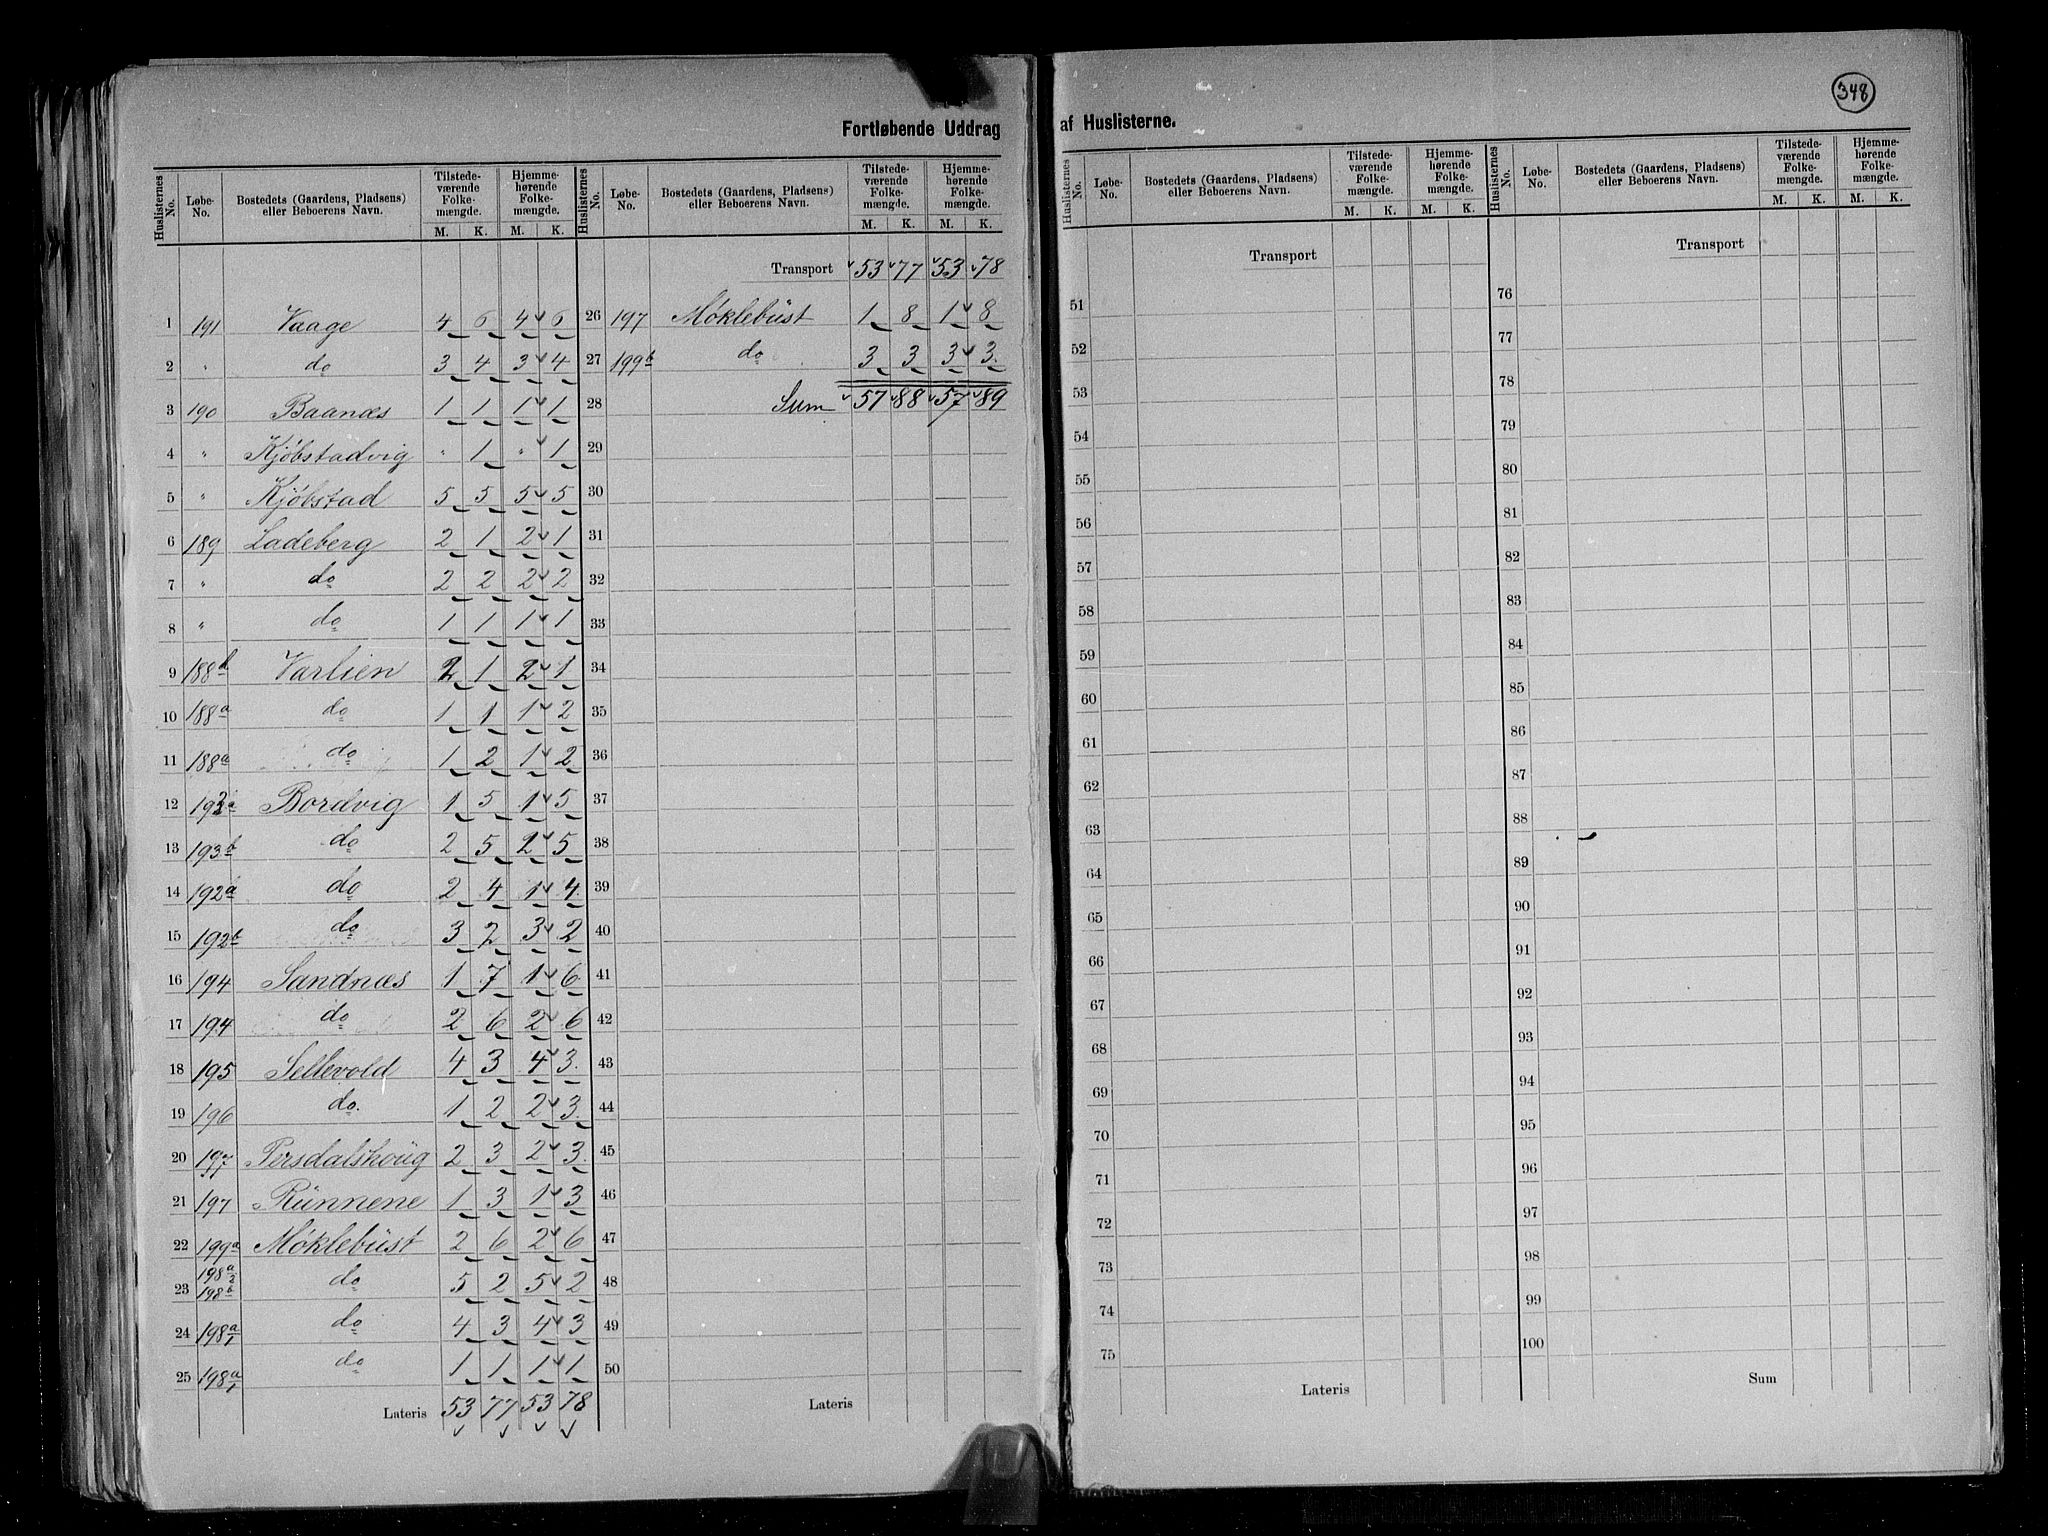 348
Fortløbende Uddrag af Huslisterne.
Huslisternes No. | Løbe-No. | Bostedets (Gaardens, Pladsens) eller Beboerens Navn. | Tilstedeværende Folkemængde. M. K. | Hjemmehørende Folkemængde. M. K.
1 191 Vaage 4 6 4 6
2 " do 3 4 3 4
3 190 Baanæs 1 1 1 1
4 " Kjøbstadvig " 1 " 1
5 " Kjøbstad 5 5 5 5
6 189 Ladeberg 2 1 2 1
7 " do 2 2 2 2
8 " do 1 1 1 1
9 188b Varlien 2 1 2 1
10 188a do 1 1 1 2
11 188a do 1 2 1 2
12 193a Bordvig 1 5 1 5
13 193b do 2 5 2 5
14 192a do 2 4 1 4
15 192b do 3 2 3 2
16 194 Sandnæs 1 7 1 6
17 194 do 2 6 2 6
18 195 Sellevold 4 3 4 3
19 196 do. 1 2 2 3
20 197 Persdalshoug 2 3 2 3
21 197 Runnene 1 3 1 3
22 199a Møklebust 2 6 2 6
23 198a/2 198b do 5 2 5 2
24 198a/1 do 4 3 4 3
25 198a/1 do 1 1 1 1
Lateris 53 77 53 78
Huslisternes No. | Løbe-No. | Bostedets (Gaardens, Pladsens) eller Beboerens Navn. | Tilstedeværende Folkemængde. M. K. | Hjemmehørende Folkemængde. M. K.
Transport 53 77 53 78
26 197 Møklebust 1 8 1 8
27 199b do 3 3 3 3
28 Sum 57 88 57 89
29
30
31
32
33
34
35
36
37
38
39
40
41
42
43
44
45
46
47
48
49
50
Lateris
Huslisternes No. | Løbe-No. | Bostedets (Gaardens, Pladsens) eller Beboerens Navn. | Tilstedeværende Folkemængde. M. K. | Hjemmehørende Folkemængde. M. K.
Transport
51
52
53
54
55
56
57
58
59
60
61
62
63
64
65
66
67
68
69
70
71
72
73
74
75
Lateris
Huslisternes No. | Løbe-No. | Bostedets (Gaardens, Pladsens) eller Beboerens Navn. | Tilstedeværende Folkemængde. M. K. | Hjemmehørende Folkemængde. M. K.
Transport
76
77
78
79
80
81
82
83
84
85
86
87
88
89
90
91
92
93
94
95
96
97
98
99
100
Sum